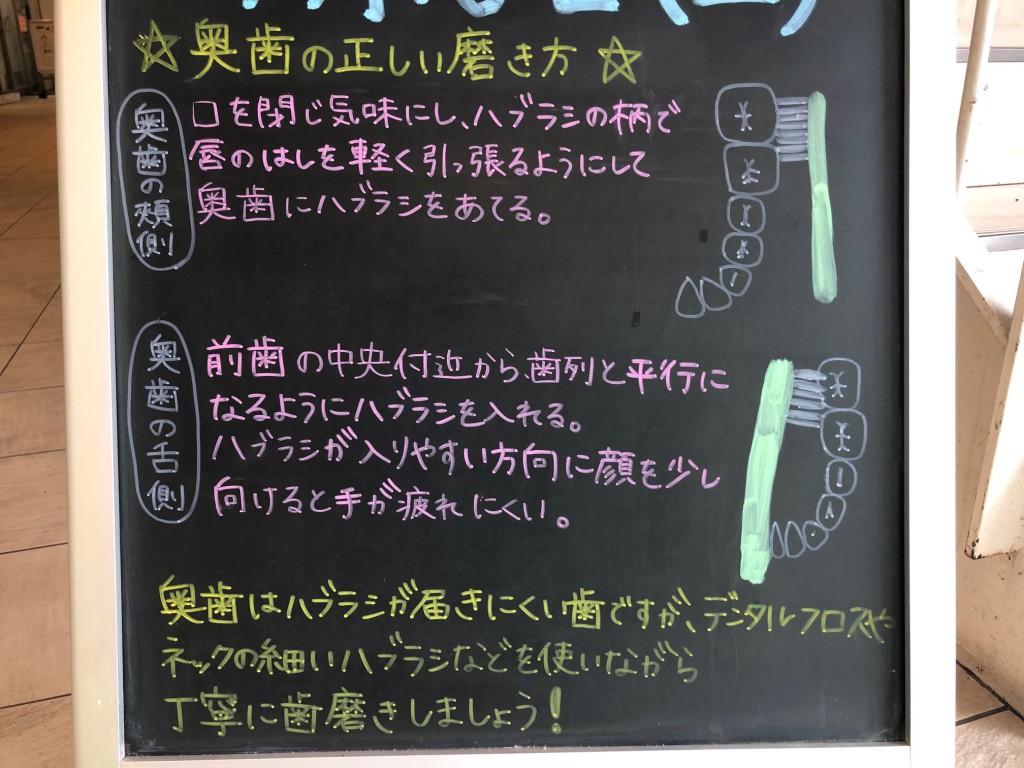 ☆奥歯の正しい磨き方☆
奥歯の頬側
口を閉じ気味にし、ハブラシの柄で
唇のはしを軽く引っ張るようにして
奥歯にハブラシをあてる。
奥歯の舌側
前歯の中央付近から、歯列と平行に
なるようにハブラシを入れる。
ハブラシが入りやすい方向に顔を少し
向けると手が疲れにくい。
奥歯はハブラシが届きにくい歯ですが、デンタルフロスや
ネックの細いハブラシなどを使いながら
丁寧に歯磨きしましょう!